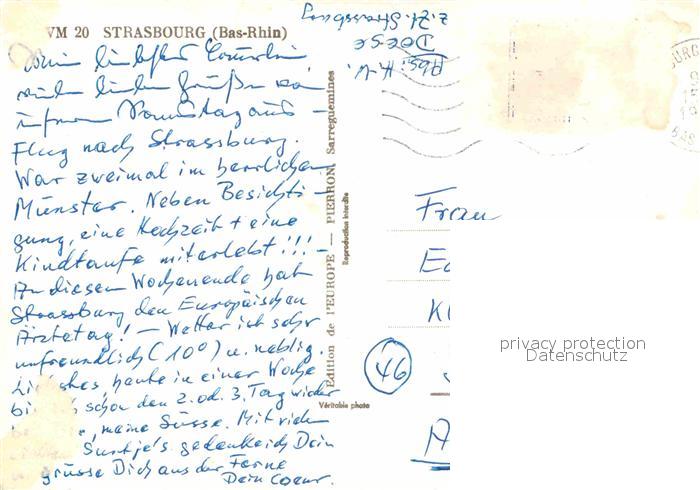 VM 20 STRASBOURG (Bas-Rhin)
Mein liebster
viele liebe Grüße von
unserem Sonntagaus-
flug nach Strassburg.
War zweimal im herrlichen
Münster. Neben Besichti-
gung, eine Hochzeit + eine
Kindtaufe miterlebt!!! -
An diesem Wochenende hat
Strassburg den Europäischen
Ärztetag! - Wetter ist sehr
unfreundlich (10°) u. neblig.
heute in einer Woche
schon den 2. od. 3. Tag wieder
, meine Süsse. Mit vielen
gedenke ich Dein
grüsse Dich aus der Ferne
Dein Coeur.
Abs: H.W.
DOESE
z. Zt. Strassburg
Edition de l'EUROPE — PIERRON, Sarreguemines
Reproduction interdite
Véritable photo
Frau
46
privacy protection
Datenschutz